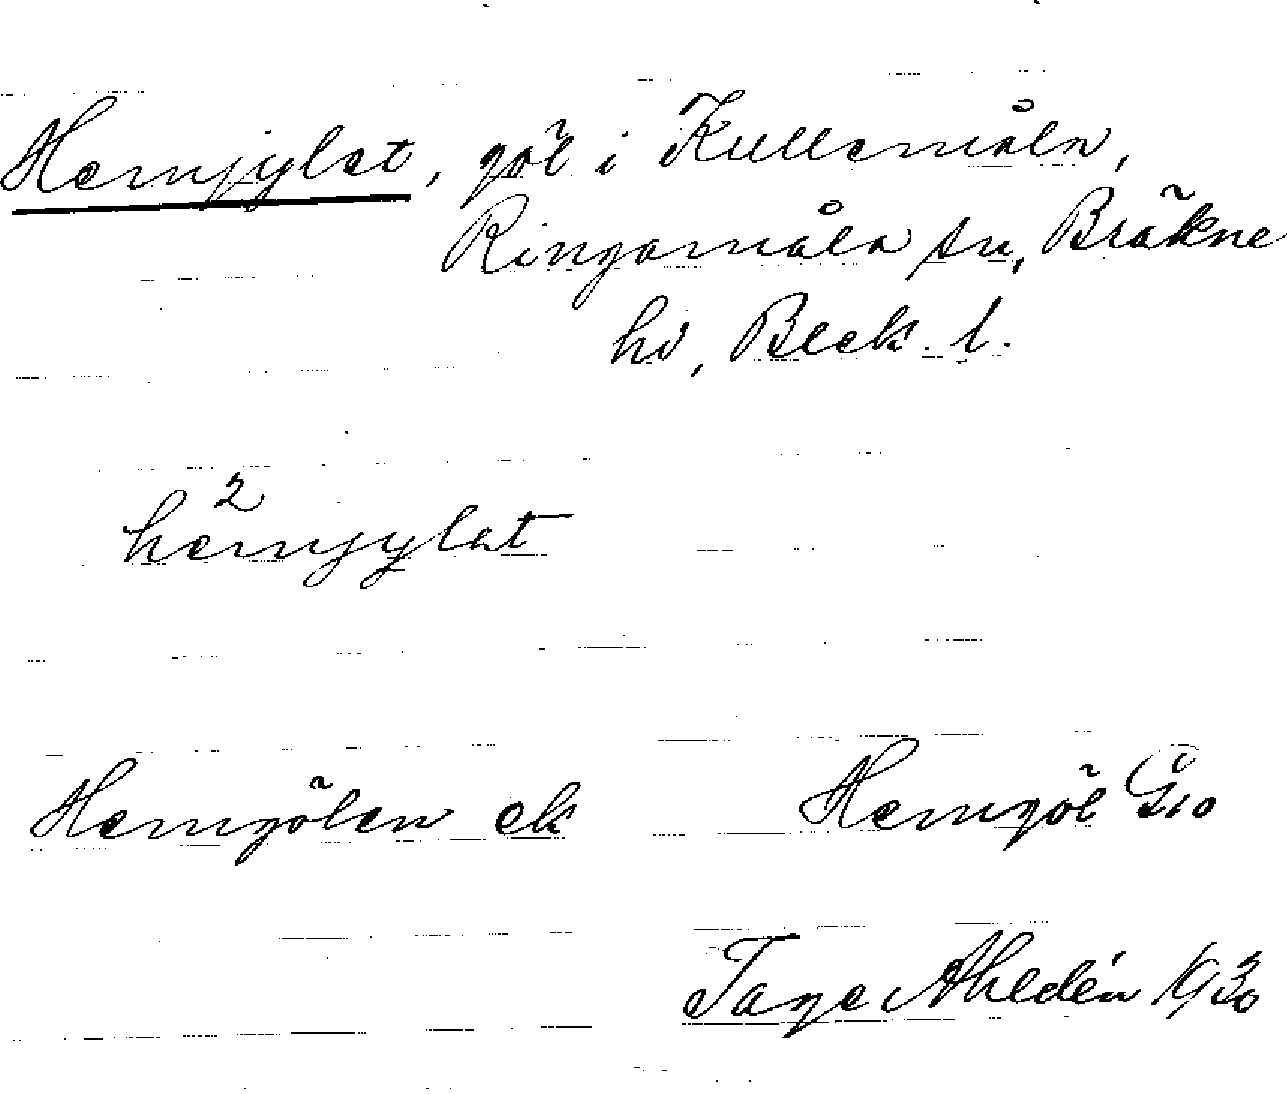 Hemjylet, göl i Kullemåla,
Ringamåla sn, Bräkne
hd, Blek. l.
2
hemjylet
Hemgölen ek Hemgöl
Tage Ahldén 1930